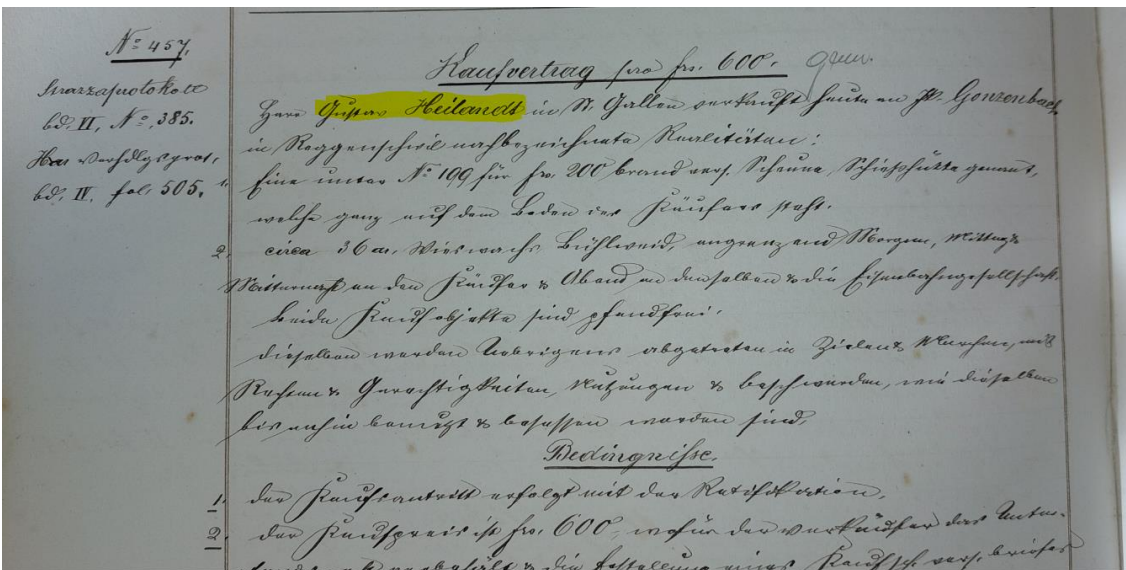 No 457.
Kaufvertrag pro frs. 600.
bd. VI, No. 385.
Herr Gustav Heilandt in St. Gallen verkauft heute an Jb. Gonzenbach
in Roggenschwil nachbezeichnete Realitäten:
bd. IV. fol. 505.
1. Eine unter No 199 für frs. 200 brand vers. Scheune, Schießhütte genannt,
welche ganz auf dem Boden des Käufers steht.
2. circa 36 ar. Wieswachs Bühlweid, angrenzend Morgen, Mittag &
Mitternacht an den Käufer & Abend an denselben & die Eisenbahngesellschaft.
Beide Kaufobjekte sind pfandfrei.
Dieselben werden Uebrigens abgetreten in Zielen & Marchen, mit
Rechten & Gerechtigkeiten, Nutzungen & Beschwerden, wie dieselben
bis anhin benutzt & besessen worden sind.
Bedingnisse.
1. Der Kaufsantritt erfolgt mit der Ratifikation.
2. Der Kaufpreis ist frs. 600, wofür der Verkäufer das Unter-
& die Erstellung eines Kaufsch. vers. briefes